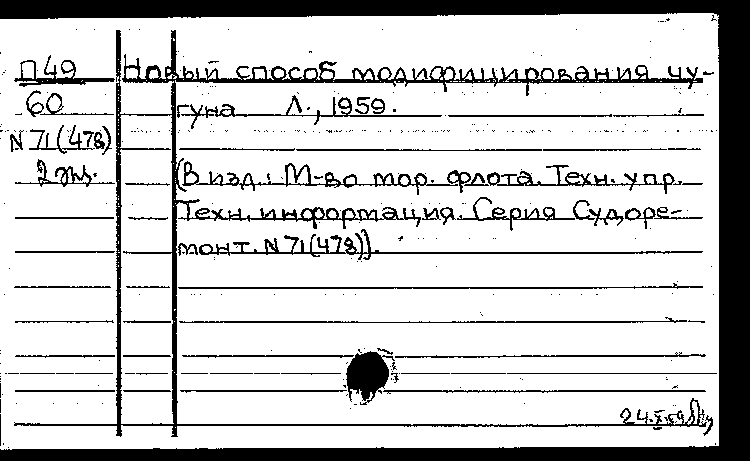 П49 Новый способ модифицирования чу-
60 гуна Л., 1959.
N 71(478)
2 экз. (В изд.: М-во мор. флота. Техн. упр.
Техн. информация. Серия Судоре-
монт. N 71(478)).
24.X.59